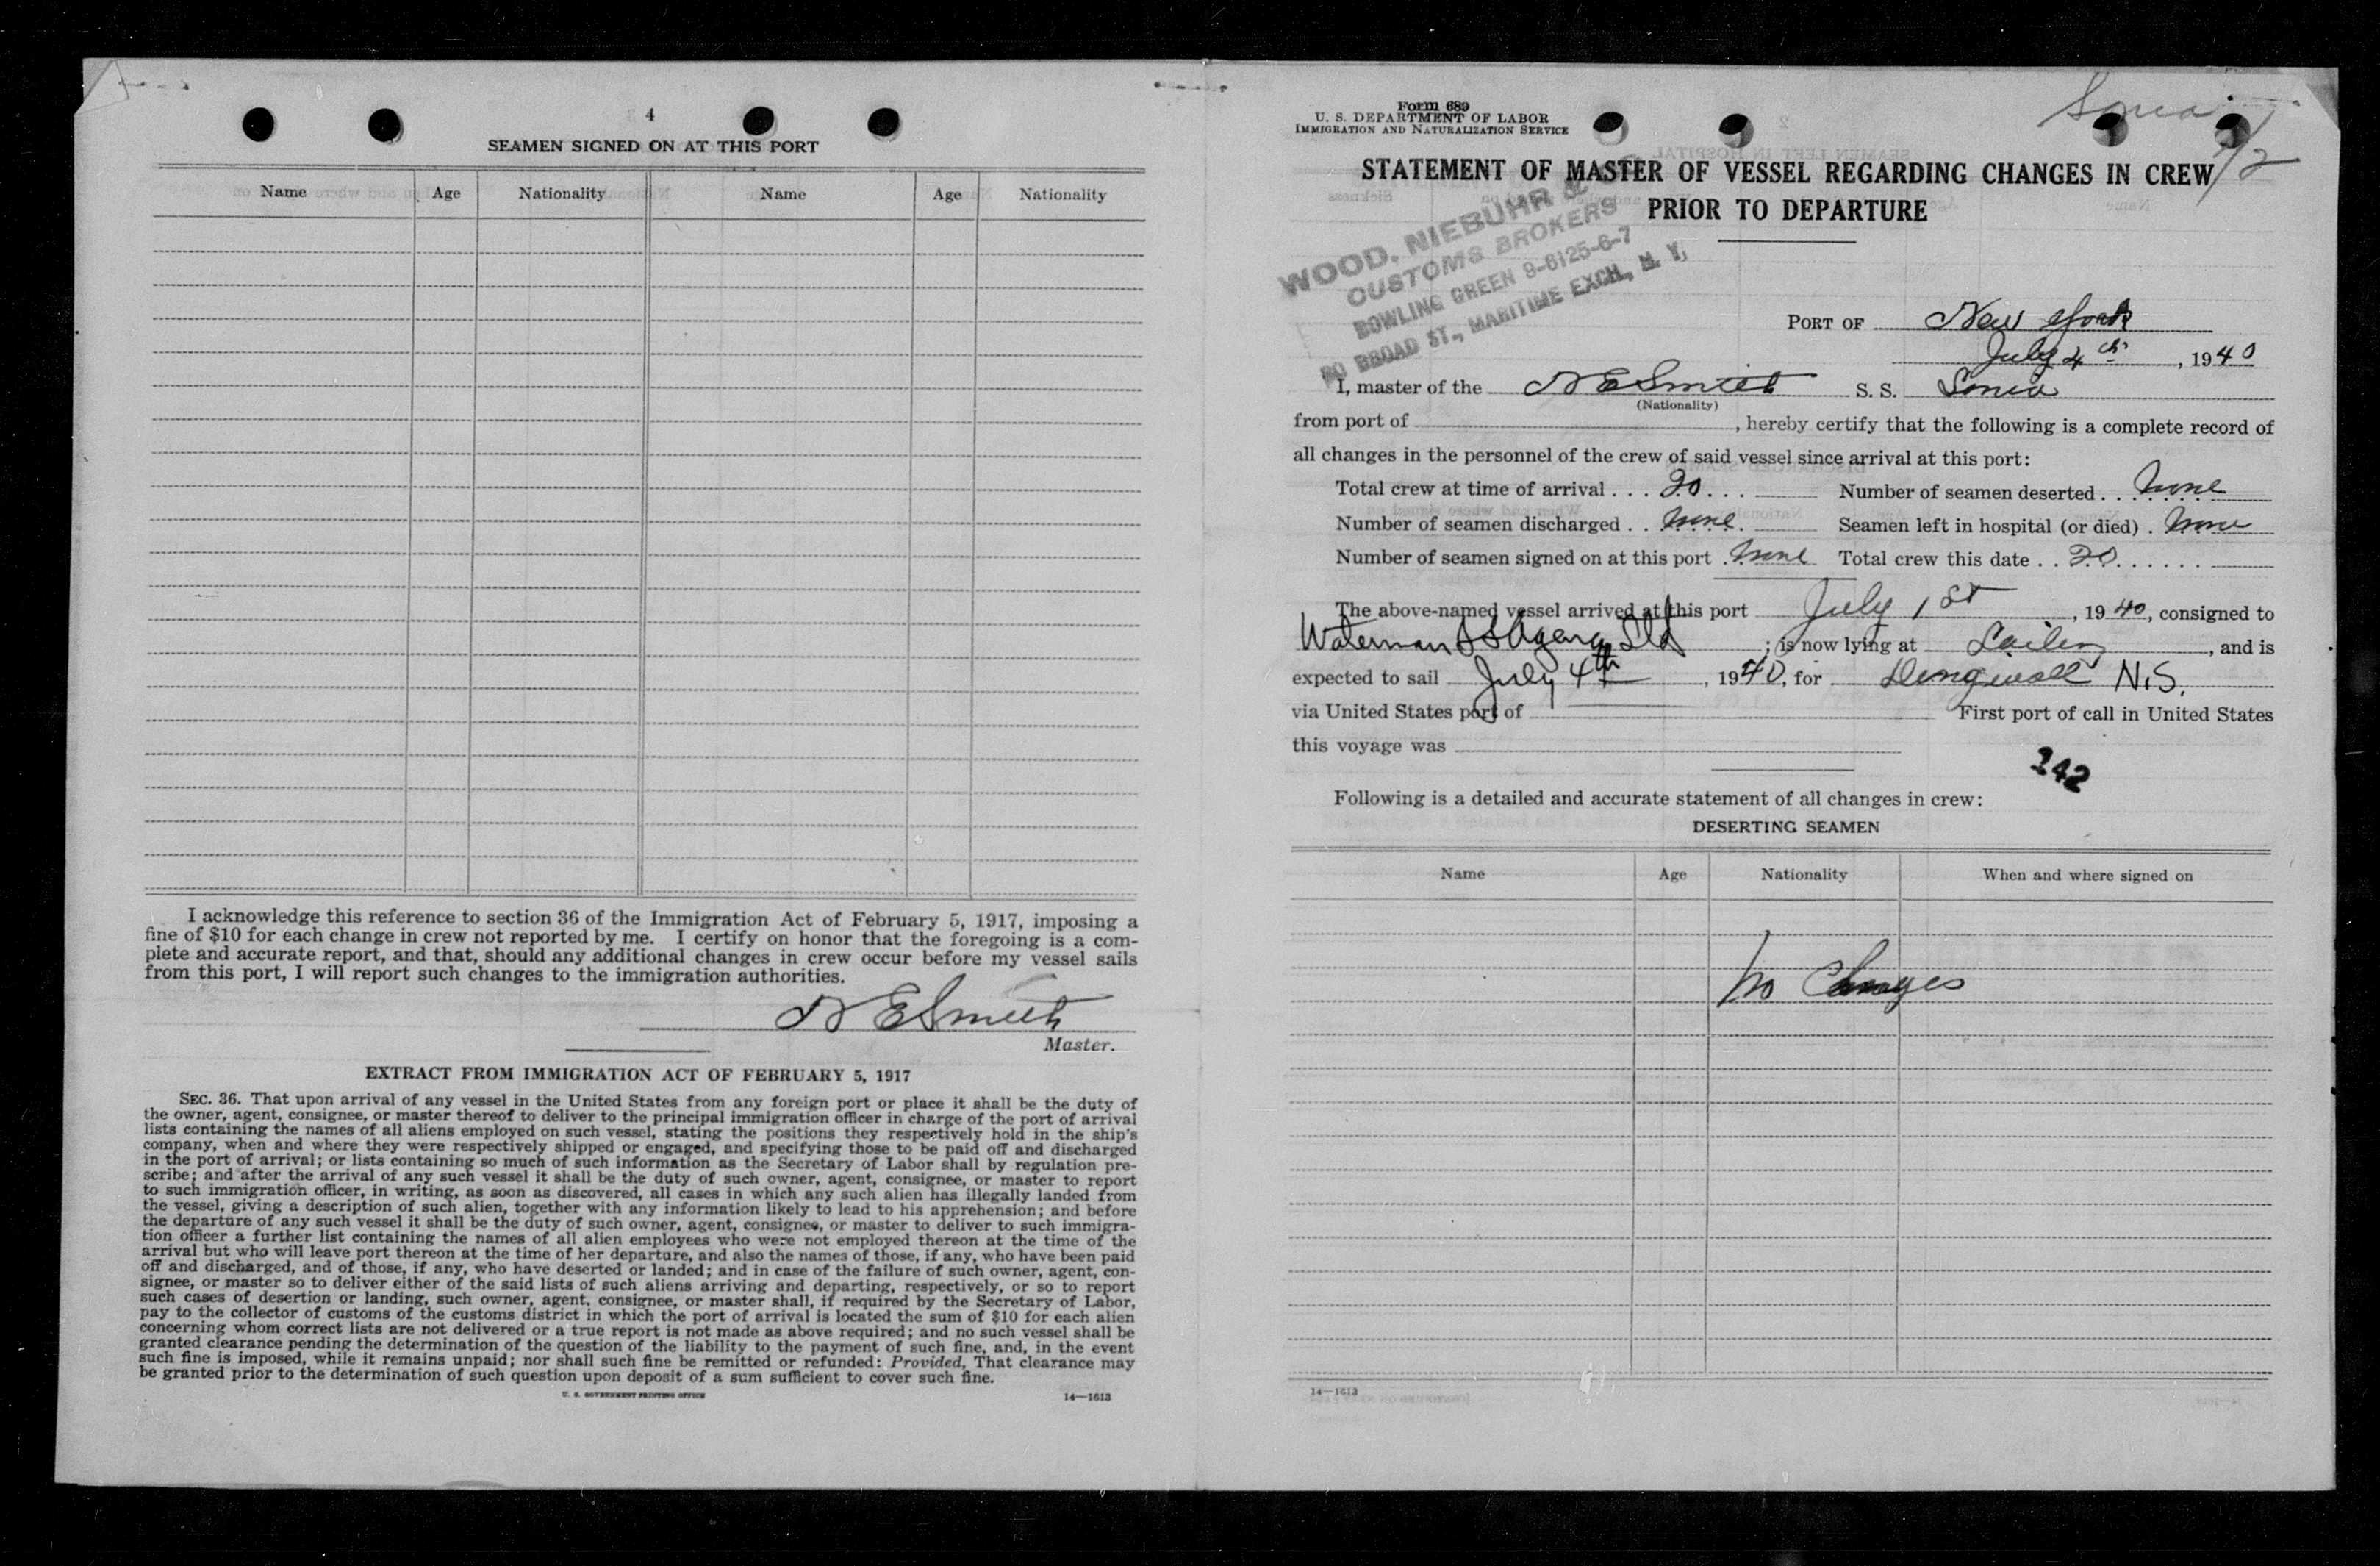 4
SEAMEN SIGNED ON AT THIS PORT
Name Age Nationality Name Age Nationality
I acknowledge this reference to section 36 of the Immigration Act of February 5, 1917, imposing a
fine of $10 for each change in crew not reported by me. I certify on honor that the foregoing is a com-
plete and accurate report, and that, should any additional changes in crew occur before my vessel sails
from this port, I will report such changes to the immigration authorities.
N E Smith
Master.
EXTRACT FROM IMMIGRATION ACT OF FEBRUARY 5, 1917
SEC. 36. That upon arrival of any vessel in the United States from any foreign port or place it shall be the duty of
the owner, agent, consignee, or master thereof to deliver to the principal immigration officer in charge of the port of arrival
lists containing the names of all aliens employed on such vessel, stating the positions they respectively hold in the ship's
company, when and where they were respectively shipped or engaged, and specifying those to be paid off and discharged
in the port of arrival; or lists containing so much of such information as the Secretary of Labor shall by regulation pre-
scribe; and after the arrival of any such vessel it shall be the duty of such owner, agent, consignee, or master to report
to such immigration officer, in writing, as soon as discovered, all cases in which any such alien has illegally landed from
the vessel, giving a description of such alien, together with any information likely to lead to his apprehension; and before
the departure of any such vessel it shall be the duty of such owner, agent, consignee, or master to deliver to such immigra-
tion officer a further list containing the names of all alien employees who were not employed thereon at the time of the
arrival but who will leave port thereon at the time of her departure, and also the names of those, if any, who have been paid
off and discharged, and of those, if any, who have deserted or landed; and in case of the failure of such owner, agent, con-
signee, or master so to deliver either of the said lists of such aliens arriving and departing, respectively, or so to report
such cases of desertion or landing, such owner, agent, consignee, or master shall, if required by the Secretary of Labor,
pay to the collector of customs of the customs district in which the port of arrival is located the sum of $10 for each alien
concerning whom correct lists are not delivered or a true report is not made as above required; and no such vessel shall be
granted clearance pending the determination of the question of the liability to the payment of such fine, and, in the event
such fine is imposed, while it remains unpaid; nor shall such fine be remitted or refunded: Provided, That clearance may
be granted prior to the determination of such question upon deposit of a sum sufficient to cover such fine.
U. S. GOVERNMENT PRINTING OFFICE 14—1613
Sonia
7/2
Form 689
U. S. DEPARTMENT OF LABOR
IMMIGRATION AND NATURALIZATION SERVICE
STATEMENT OF MASTER OF VESSEL REGARDING CHANGES IN CREW
PRIOR TO DEPARTURE
WOOD, NIEBUHR &
CUSTOMS BROKERS
BOWLING GREEN 9-6125-6-7
80 BROAD ST., MARITIME EXCH., N. Y.
PORT OF New York
July 4th, 1940
I, master of the N E Smith S. S. Sonia
(Nationality)
from port of , hereby certify that the following is a complete record of
all changes in the personnel of the crew of said vessel since arrival at this port:
Total crew at time of arrival . . . 20 . . . Number of seamen deserted . . None
Number of seamen discharged . . None. Seamen left in hospital (or died) . None
Number of seamen signed on at this port . None Total crew this date . . 20 . . . . . .
The above-named vessel arrived at this port July 1st, 1940, consigned to
Waterman SS Agency Ltd ; is now lying at , and is
expected to sail July 4th, 1940, for Dingwall N.S.
via United States port of First port of call in United States
this voyage was
242
Following is a detailed and accurate statement of all changes in crew:
DESERTING SEAMEN
Name Age Nationality When and where signed on
No Changes
14—1613